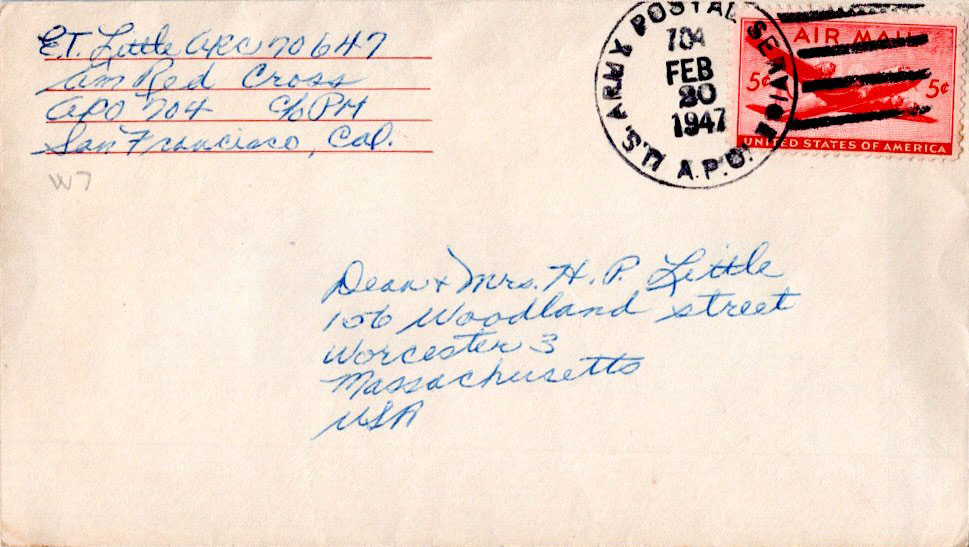 E.T. Little ARC 70647
Am Red Cross
APO 704 c/o PM
San Francisco, Cal.
W7
U.S. ARMY POSTAL SERVICE
704
FEB
20
1947
A.P.O.
AIR MAIL
5¢ 5¢
UNITED STATES OF AMERICA
Dean + Mrs. H. P. Little
106 Woodland street
Worcester 3
Massachusetts
USA